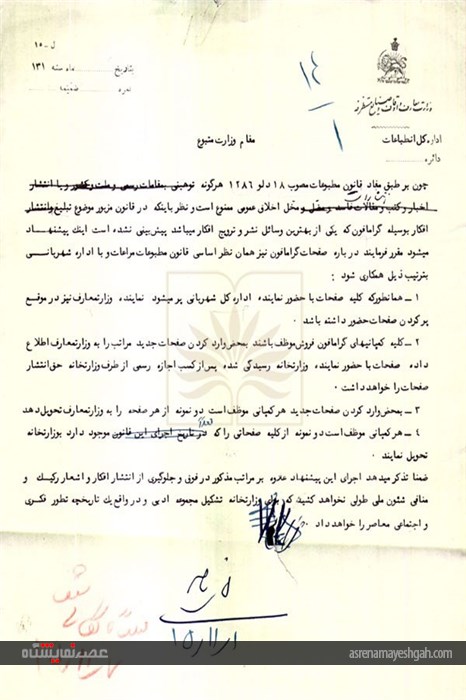 ل - ۱۵
بتاریخ ماه سنه ۱۳۱
نمره ضمیمه
وزارت معارف و اوقاف و صنایع مستظرفه
اداره کل انطباعات
دائره
۱۴
۱
مقام وزارت متبوع
چون بر طبق مفاد قانون مطبوعات مصوب ۱۸ دلو ۱۲۸۶ هرگونه توهینی بمقامات رسمی و ملت و کشور و یا انتشار
اخبار و کتب و مقالات فاسد و مضل و مخل اخلاق عمومی ممنوع است و نظر باینکه در قانون مزبور موضوع تبلیغ و انتشار
افکار بوسیله گرامافون که یکی از بهترین وسائل نشر و ترویج افکار میباشد پیش بینی نشده است اینك پیشنهاد
میشود مقرر فرمایند در باره صفحات گرامافون نیز همان نظر اساسی قانون مطبوعات مراعات و با اداره شهربانی
بترتیب ذیل همکاری شود :
۱ ـ همانطورکه کلیه صفحات با حضور نماینده اداره کل شهربانی پر میشود نماینده وزارتمعارف نیز در موقع
پر کردن صفحات حضور داشته باشد ۰
۲ ـ کلیه کمپانیهای گرامافون فروش موظف باشند بمحض وارد کردن صفحات جدید مراتب را به وزارتمعارف اطلاع
داده صفحات با حضور نماینده وزارتخانه رسیدگی شده پس از کسب اجازه رسمی از طرف وزارتخانه حق انتشار
صفحات را خواهد داشت ۰
۳ ـ بمحض وارد کردن صفحات جدید هر کمپانی موظف است دو نمونه از هر صفحه را به وزارتمعارف تحویل دهد
۴ ـ هر کمپانی موظف است دو نمونه از کلیه صفحاتی را که در تاریخ اجرای این قانون موجود دارد بوزارتخانه
تحویل نمایند ۰
ضمنا تذکر میدهد اجرای این پیشنهاد علاوه بر مراتب مذکور در فوق و جلوگیری از انتشار افکار و اشعار رکیك و
منافی شئون ملی طولی نخواهد کشید که برای وزارتخانه تشکیل مجموعه ادبی و در واقع یك تاریخچه تطور فکری
و اجتماعی معاصر را خواهد داد ۰
عصر نمایشگاه
asrenamayeshgah.com